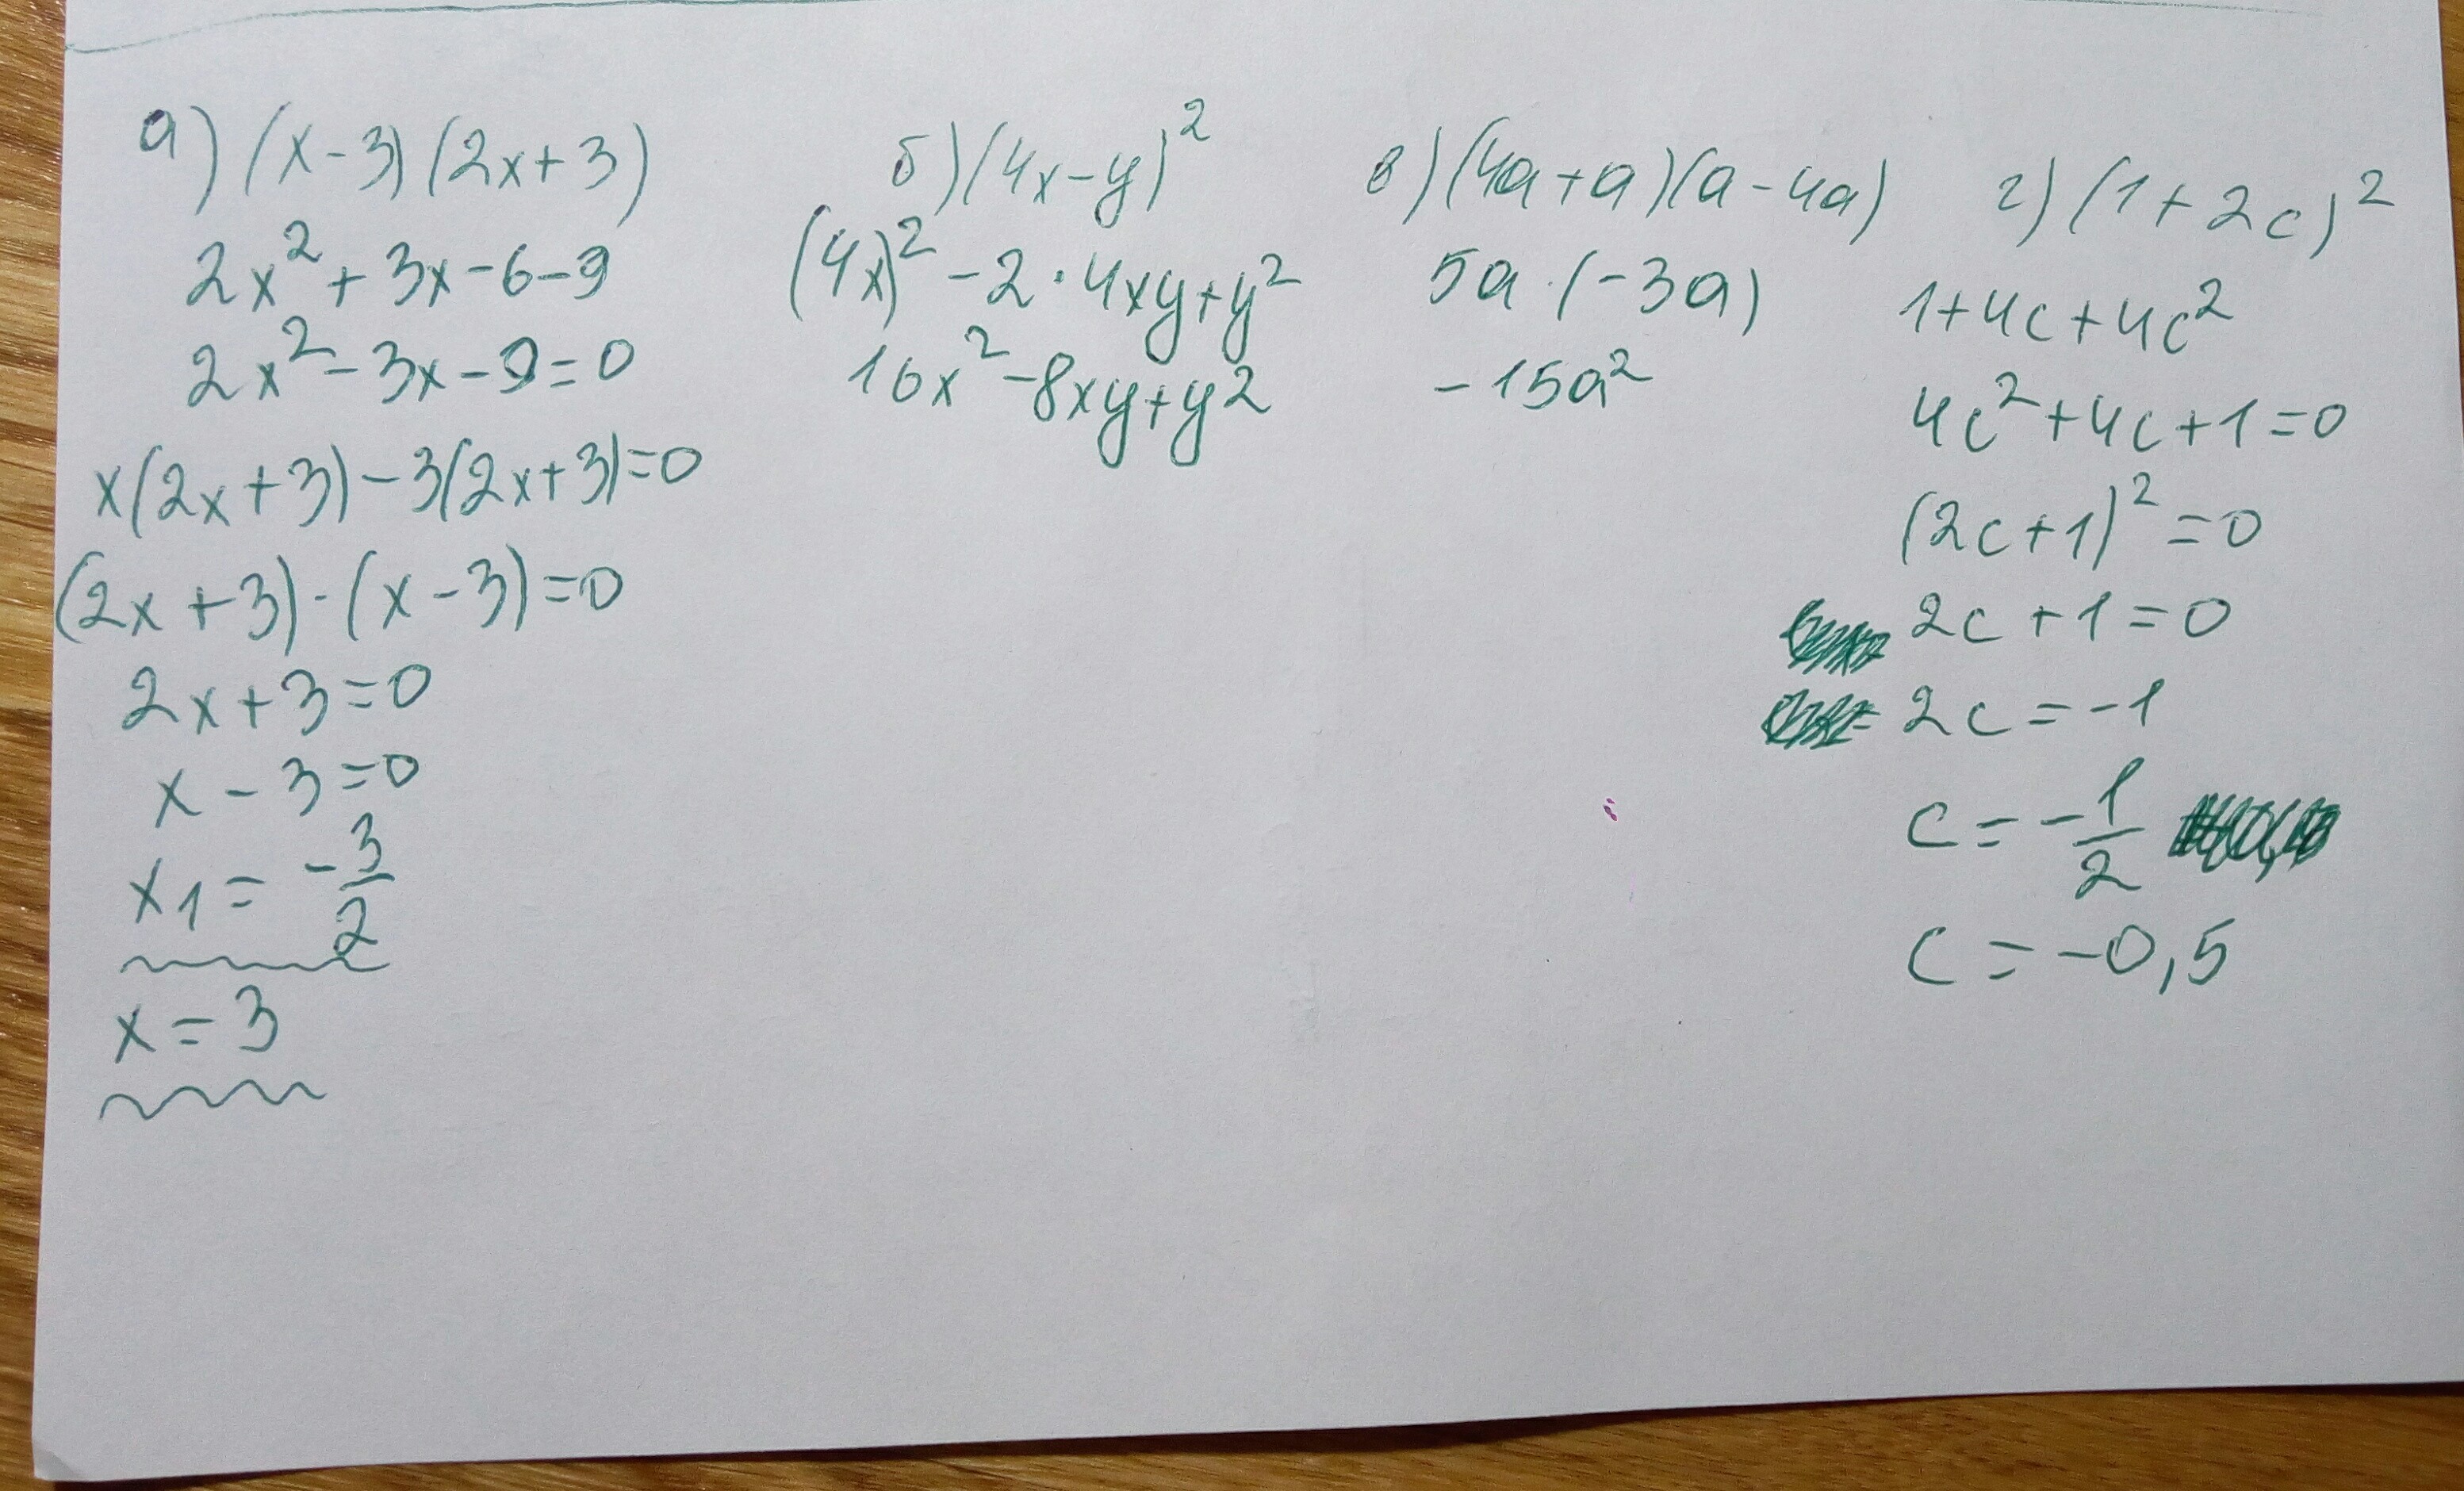 а) (x-3)(2x+3)
2x²+3x-6-9
2x²-3x-9=0
x(2x+3)-3(2x+3)=0
(2x+3)·(x-3)=0
2x+3=0
x-3=0
x1=-3/2
x=3
б) (4x-y)²
(4x)²-2·4xy+y²
16x²-8xy+y2
в) (4a+a)(a-4a)
5a·(-3a)
-15a²
г) (1+2c)²
1+4c+4c²
4c²+4c+1=0
(2c+1)²=0
2c+1=0
2c=-1
c=-1/2
c=-0,5